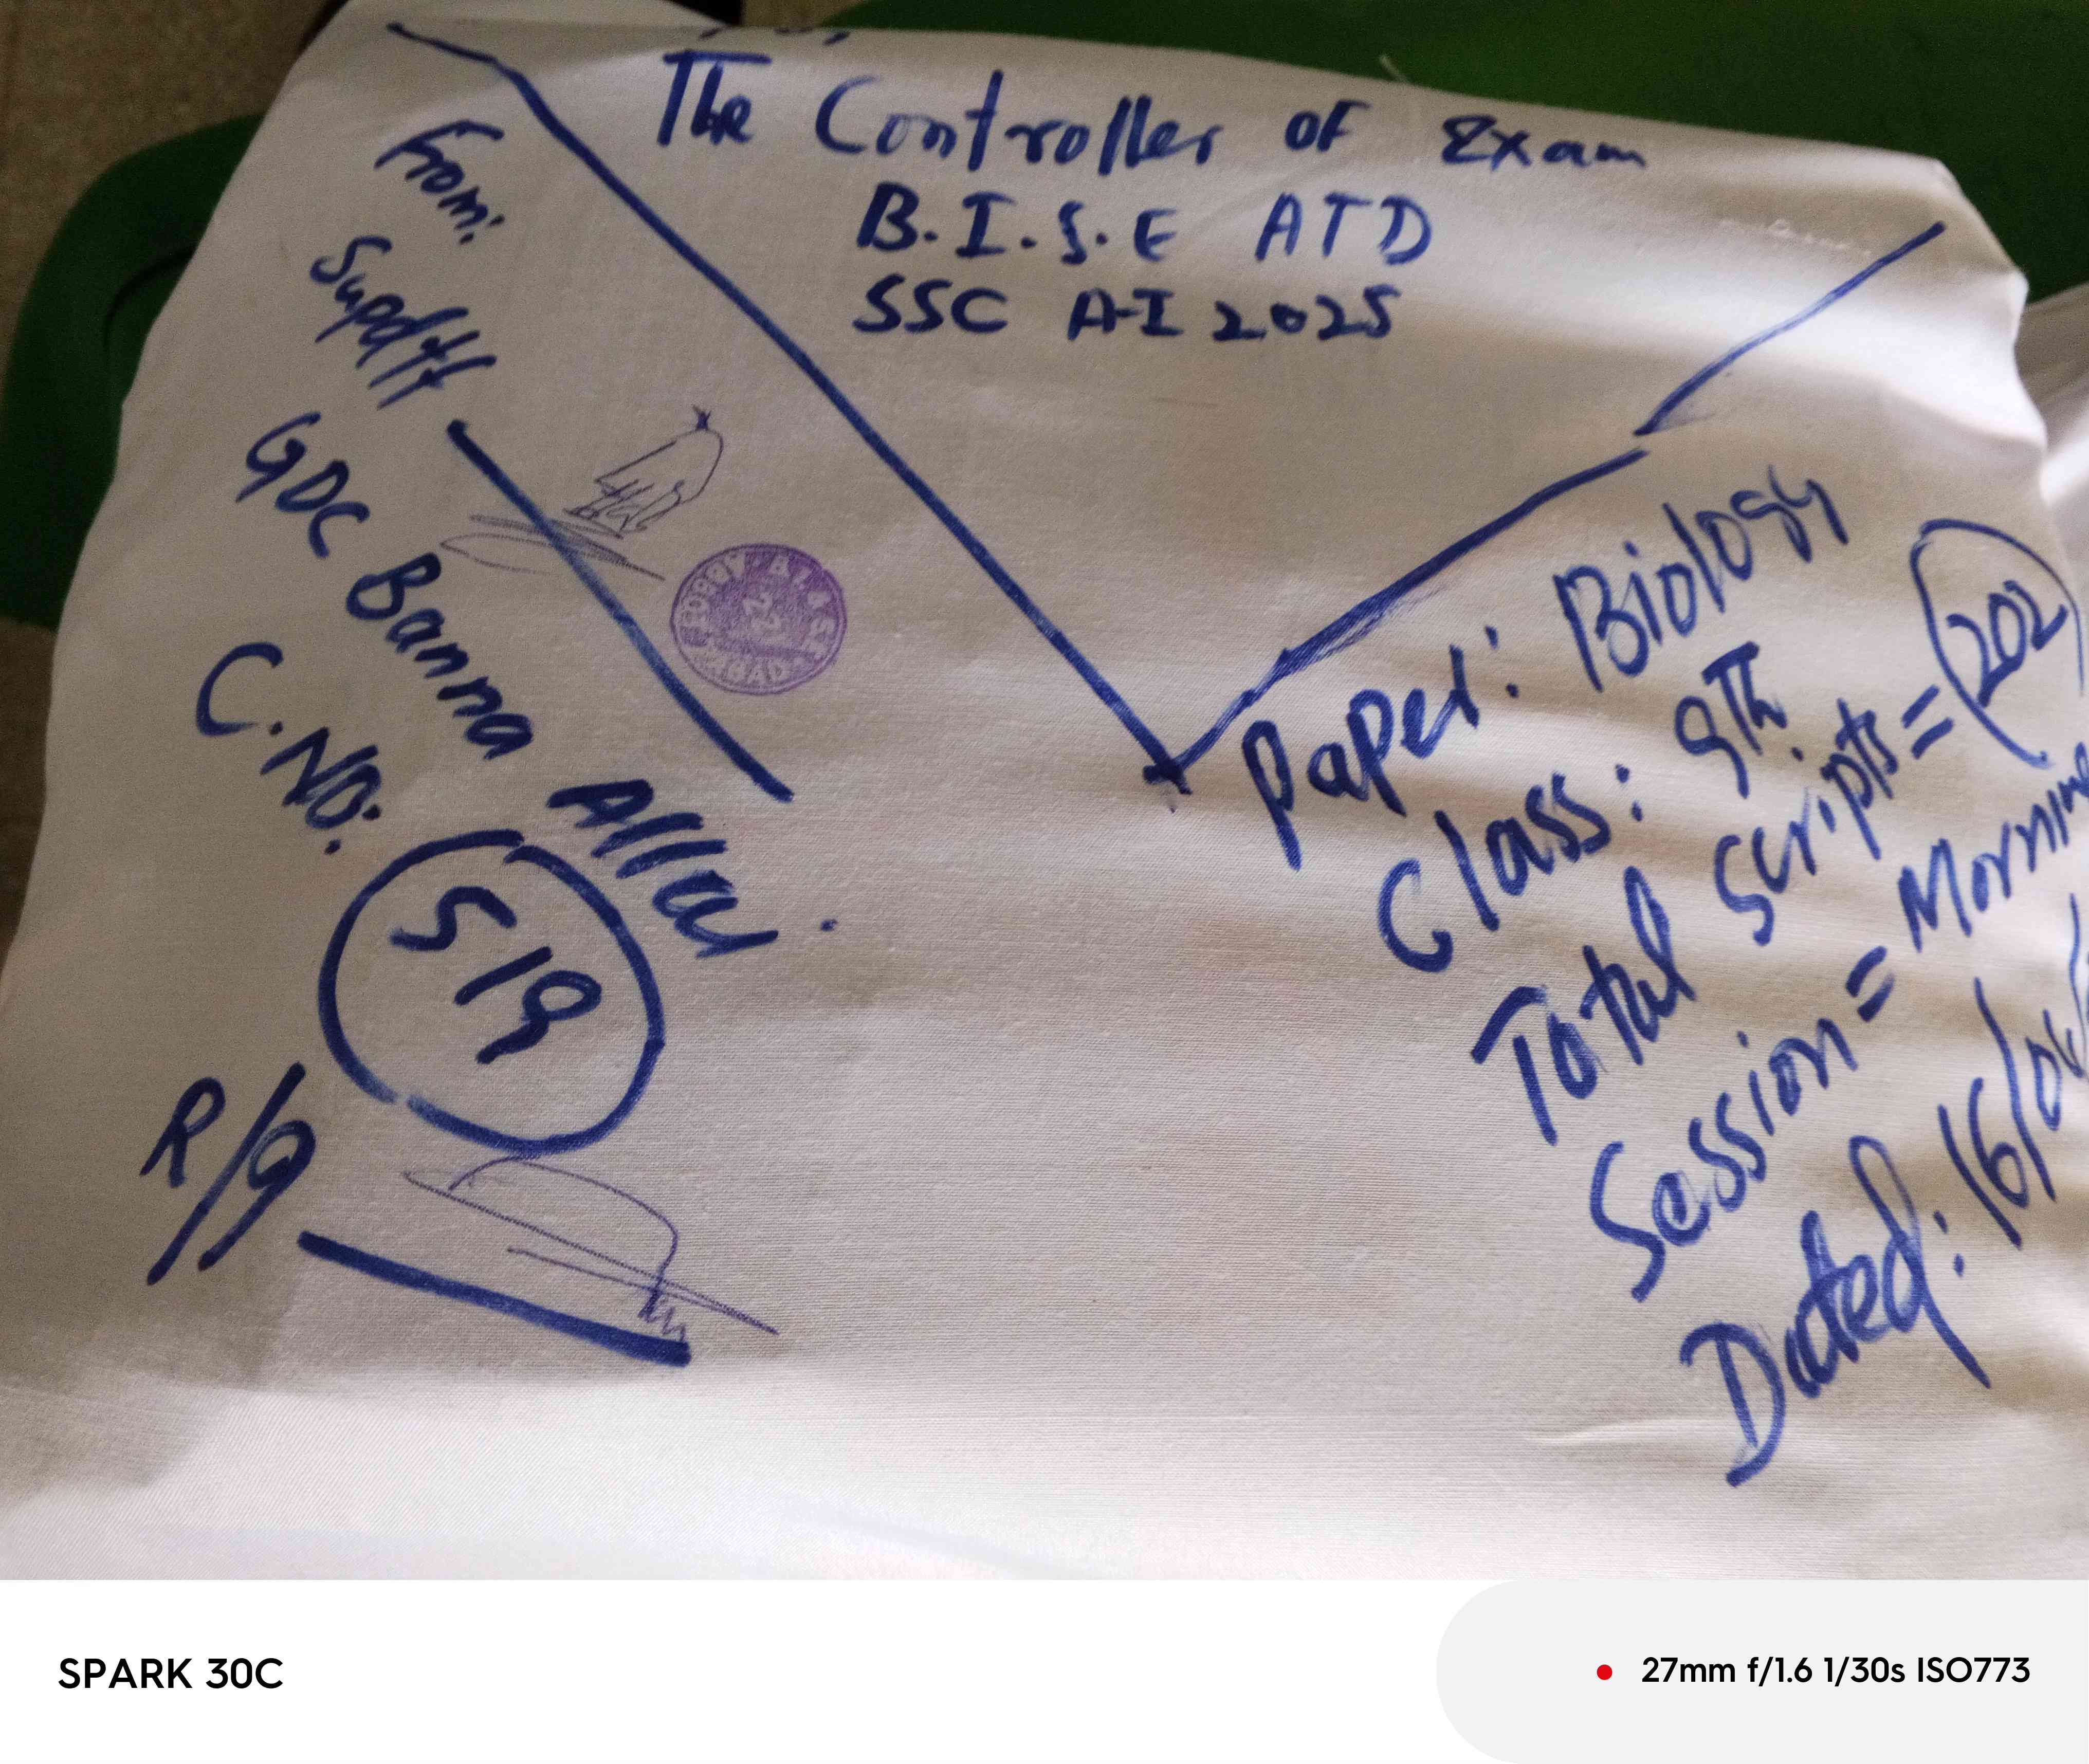 The Controller of Exam
B.I.S.E ATD
SSC A-I 2025
From:
Supdtt
GDC Banna Allai.
C.NO: 519
R/9
Paper: Biology
Class: 9Th
Total Scripts = 202
Session = Morning
Dated: 16/04/
SPARK 30C
27mm f/1.6 1/30s ISO773